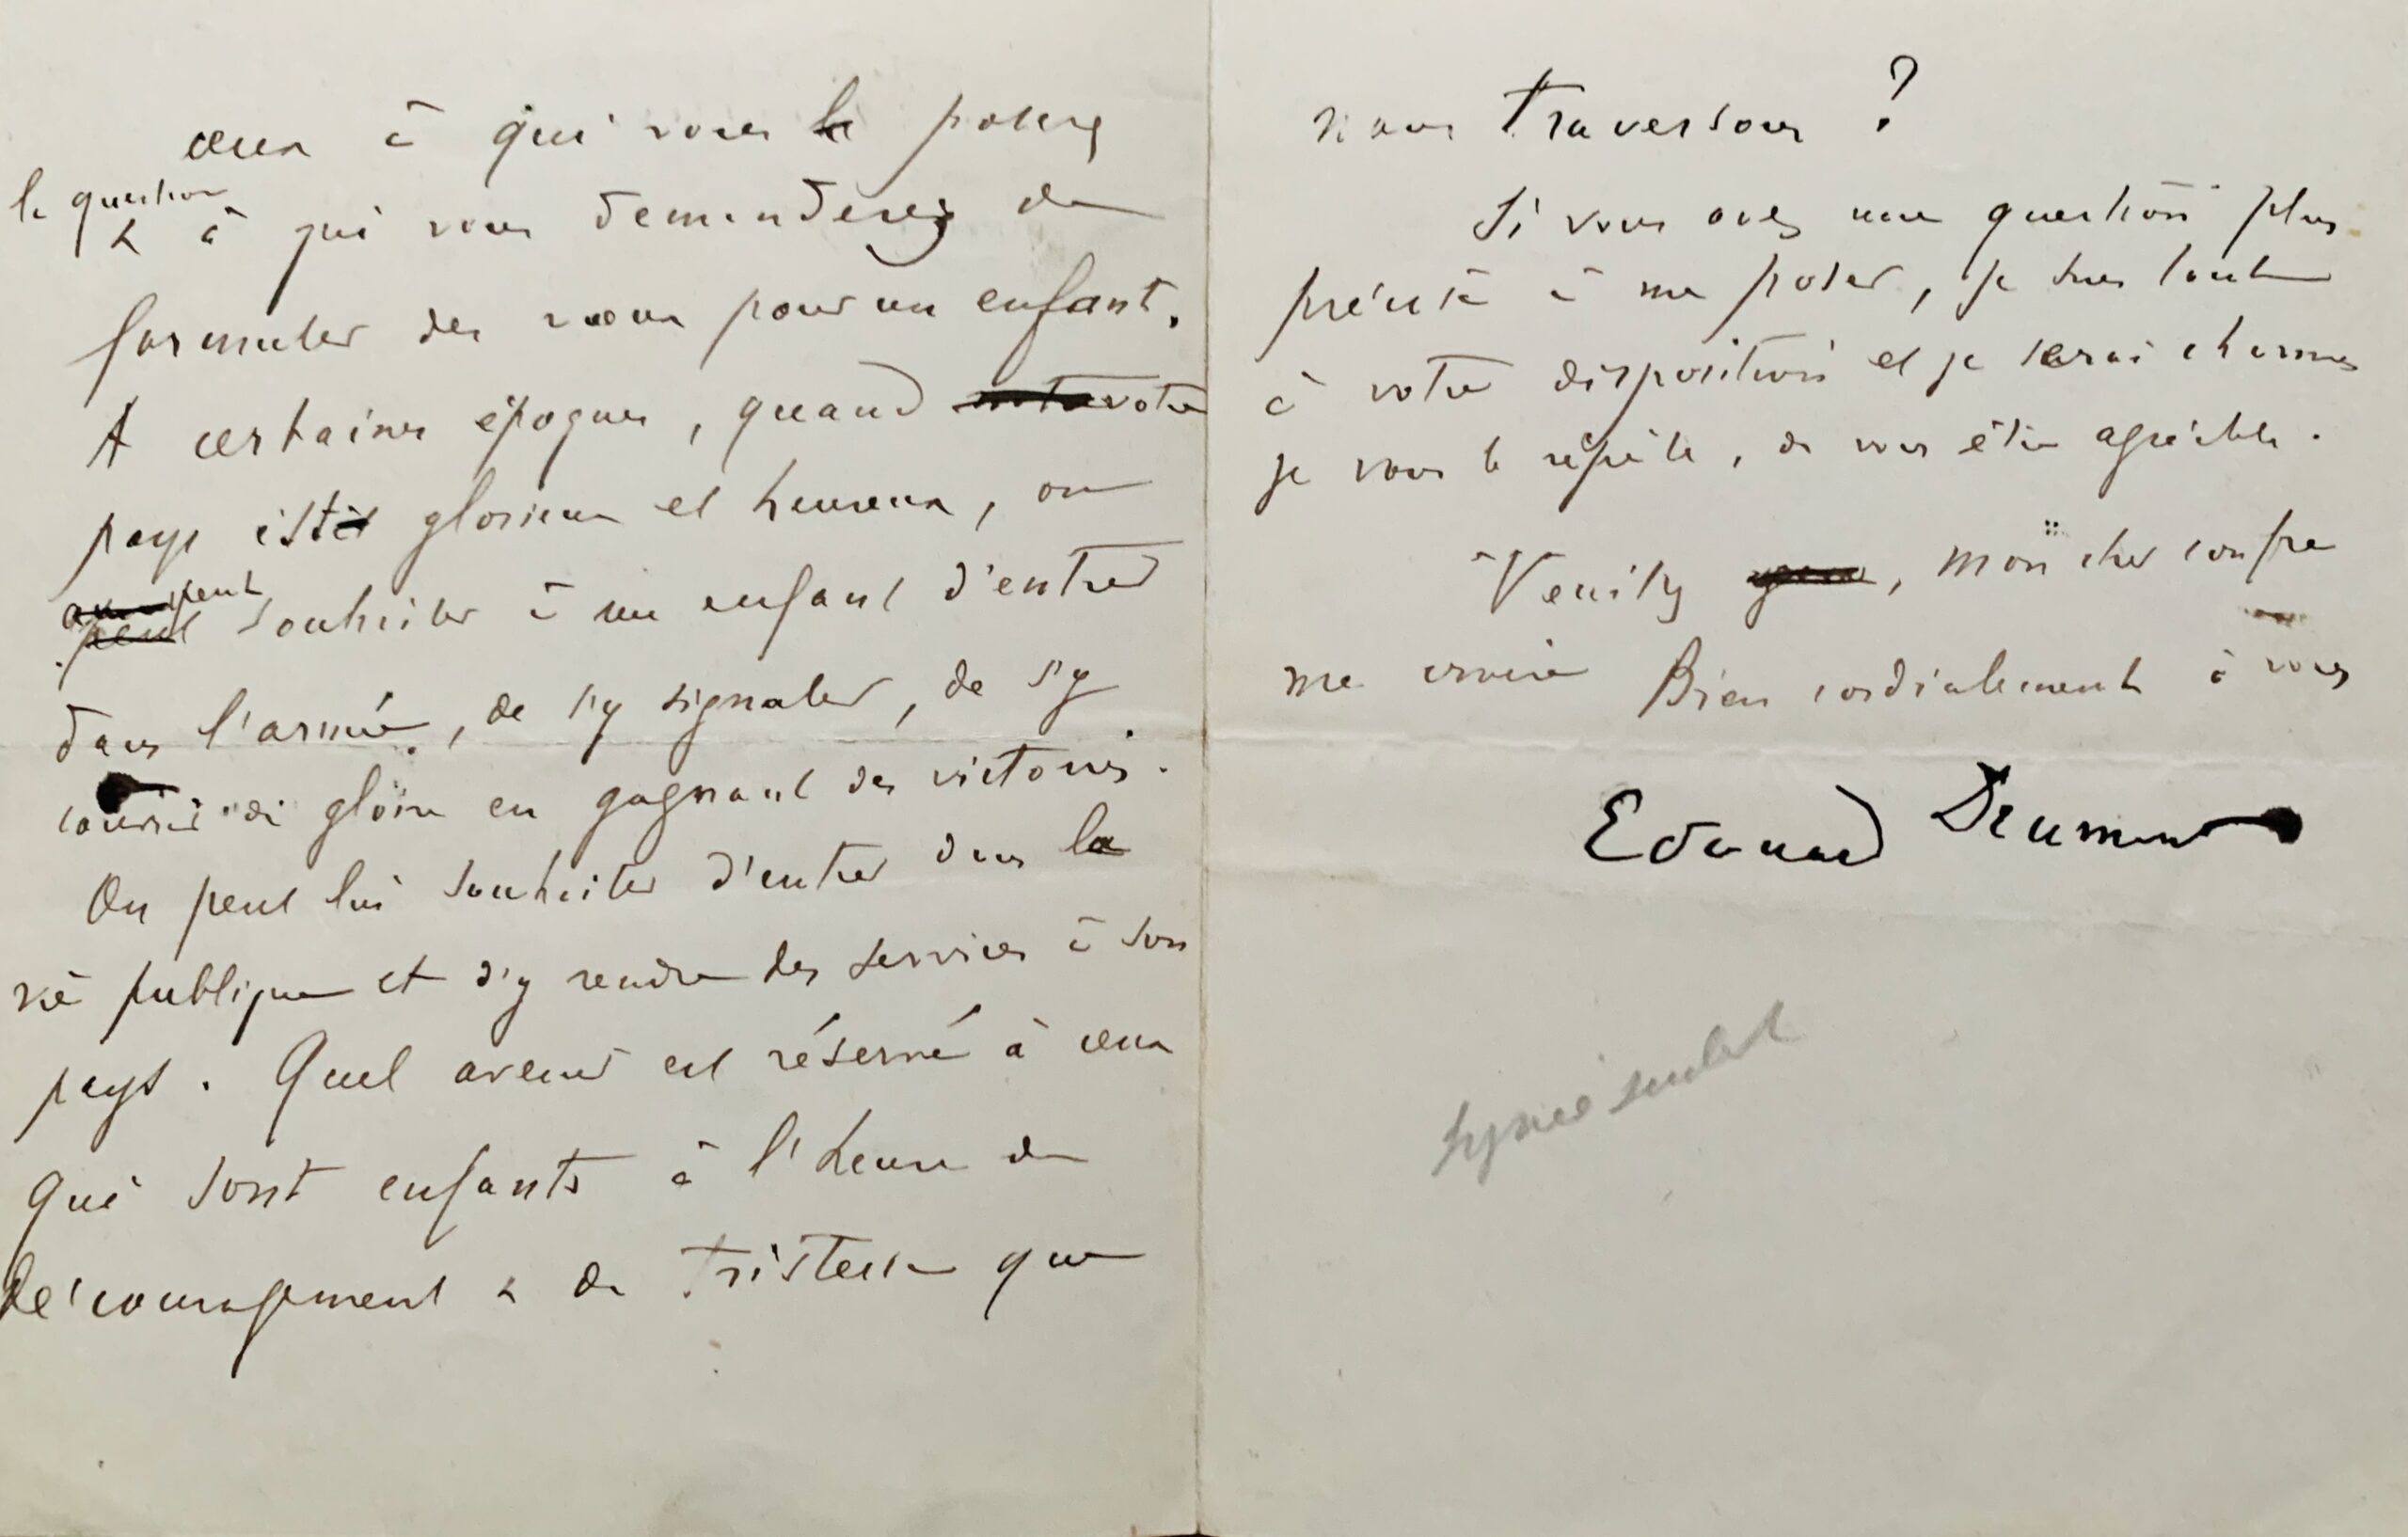 ceux à qui vous la posez
la question
& à qui vous demanderez de
formuler des vœux pour un enfant.
A certaines époques, quand votre
pays est glorieux et heureux, on
peut souhaiter à un enfant d'entrer
dans l'armée, de s'y signaler, de s'y
couvrir de gloire en gagnant des victoires.
On peut lui souhaiter d'entrer dans la
vie publique et d'y rendre des services à son
pays. Quel avenir est réservé à ceux
qui sont enfants à l'heure de
découragement & de tristesse que
nous traversons ?
Si vous avez une question plus
précise à me poser, je suis tout
à votre disposition et je serai charmé
je vous le répète, de vous être agréable.
Veuillez, mon cher confre
me croire Bien cordialement à vous
Edouard Drumont